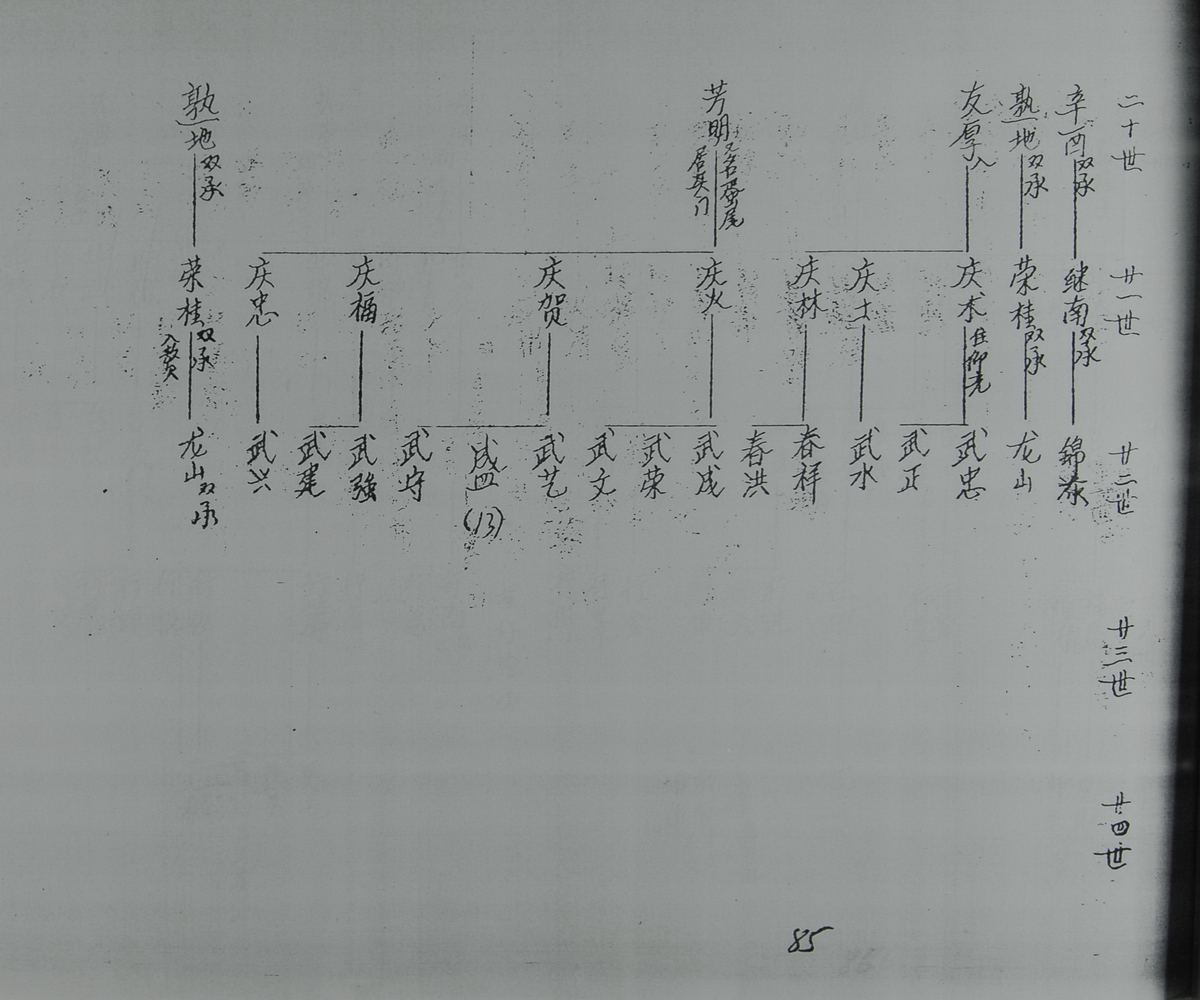 二十世
辛酉 双承
孰地 双承
友厚
芳明 又名 尾
居吴门
孰地 双承
廿一世
继南 双承
荣桂 双承
庆术 住仰光
庆士
庆林
庆火
庆贺
庆福
庆忠
荣桂 双承
廿二世
锦泰
龙山
武忠
武正
武水
春祥
春洪
武成
武荣
武文
武艺
武守
武强
武建
武兴
龙山 双承
(13)
廿三世
廿四世
85